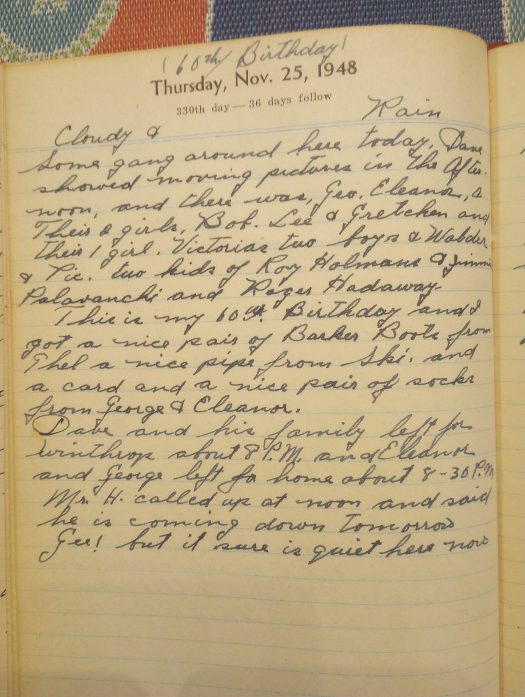 (60th Birthday)
Thursday, Nov. 25, 1948
330th day — 36 days follow
Cloudy & Rain
Some gang around here today. Dave
showed moving pictures in the After-
noon, and there was, Geo. Eleanor, &
Their 2 girls, Bob. Lee & Gretchen and
their 1 girl. Victorias two boys &
& Pic. two kids of Roy Holmans & Jimmie
Palavanchi and Roger Hadaway.
This is my 60th. Birthday and I
got a nice pair of Barker Boots from
Thel a nice pipe from Ski. and
a card and a nice pair of socks
from George & Eleanor.
Dave and his family left for
winthrop about 8 P.M. and Eleanor
and George left for home about 8-30 P.M
Mr. H. called up at noon and said
he is coming down tomorrow
Gee! but it sure is quiet here now